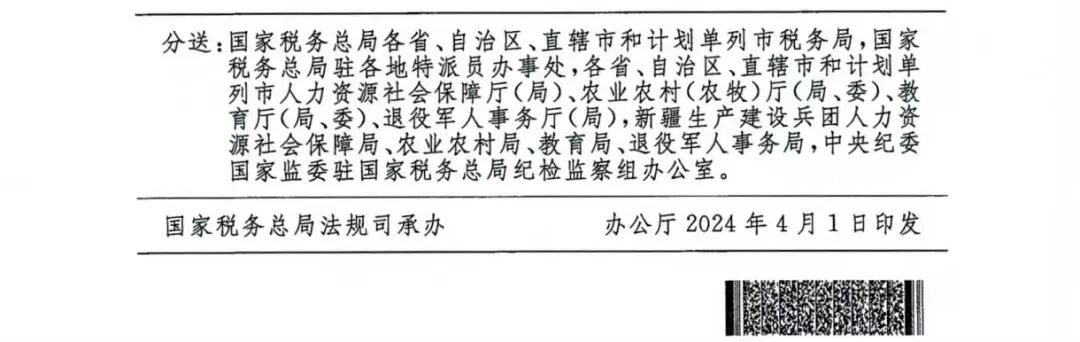 分送：国家税务总局各省、自治区、直辖市和计划单列市税务局，国家
税务总局驻各地特派员办事处，各省、自治区、直辖市和计划单
列市人力资源社会保障厅（局）、农业农村（农牧）厅（局、委）、教
育厅（局、委）、退役军人事务厅（局），新疆生产建设兵团人力资
源社会保障局、农业农村局、教育局、退役军人事务局，中央纪委
国家监委驻国家税务总局纪检监察组办公室。
国家税务总局法规司承办 办公厅 2024 年 4 月 1 日印发